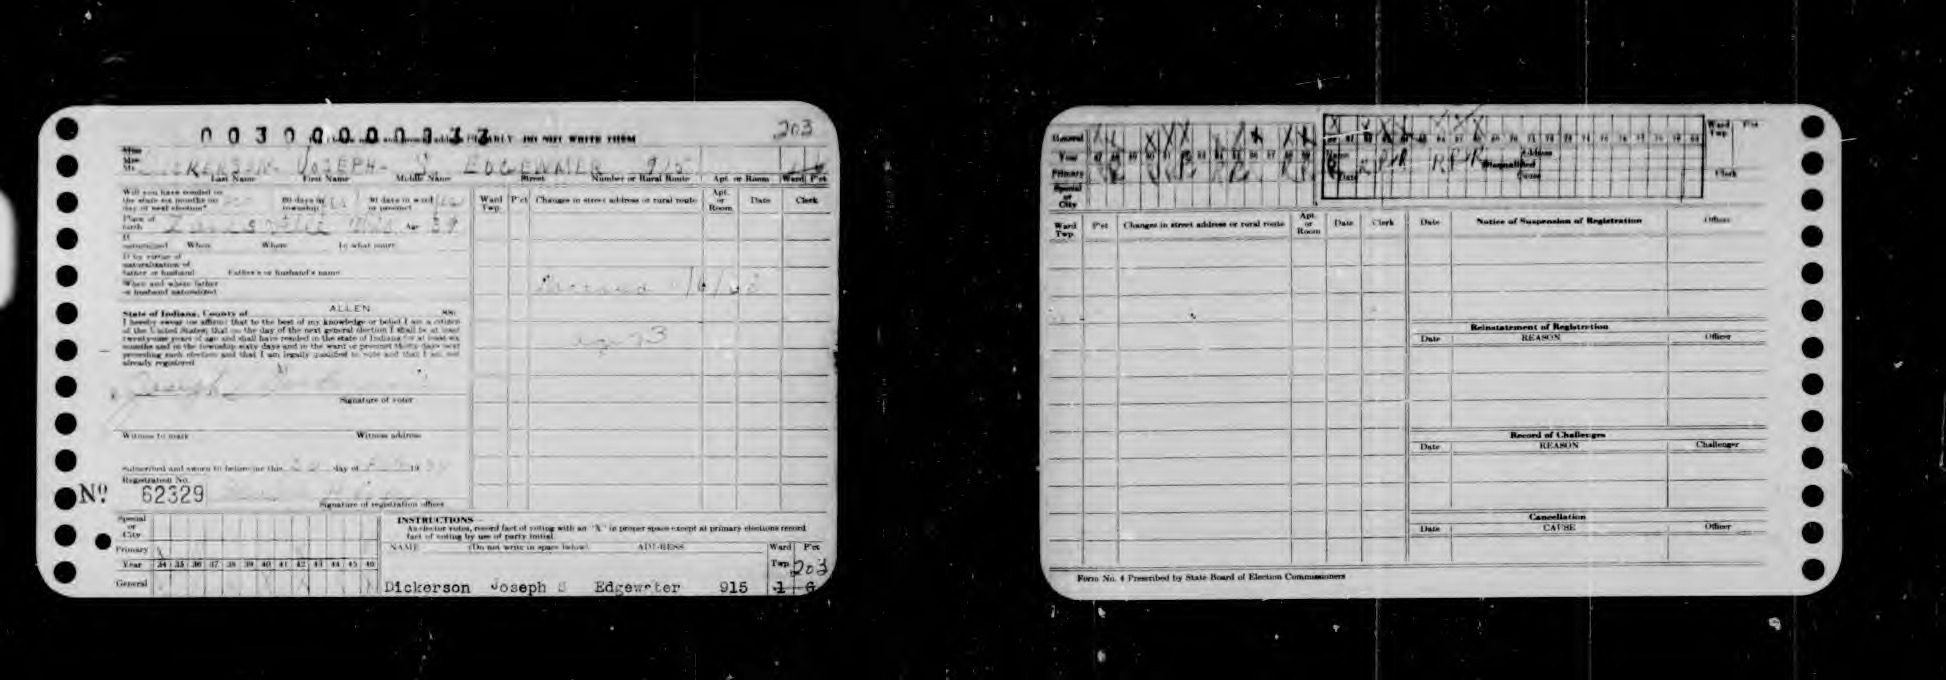 203
PLAINLY DO NOT WRITE THEM
Miss
Mrs.
Mr. DICKERSON JOSEPH S EDGEWATER 915
Last Name First Name Middle Name Street Number or Rural Route Apt. or Room Ward P'ct
Will you have resided in
the state six months on
day of next election? 60 days in
township? 30 days in ward
or precinct
Ward
Twp. P'ct Changes in street address or rural route Apt.
or
Room Date Clerk
Place of
birth Age 39
If
naturalized When Where In what court
If by virtue of
naturalization of
father or husband Father's or husband's name
When and where father
or husband naturalized
State of Indiana, County of ALLEN SS:
I hereby swear (or affirm) that to the best of my knowledge or belief I am a citizen
of the United States; that on the day of the next general election I shall be at least
twenty-one years of age and shall have resided in the state of Indiana for at least six
months and in the township sixty days and in the ward or precinct thirty days next
preceding such election and that I am legally qualified to vote and that I am not
already registered.
age 73
x Joseph
Signature of voter
Witness to mark Witness address
Subscribed and sworn to before me this day of 19
Registration No.
Nº 62329
Signature of registration officer
Special
or
City
Primary
Year 34 35 36 37 38 39 40 41 42 43 44 45 46
General
INSTRUCTIONS—
As elector votes, record fact of voting with an "X" in proper space except at primary elections record
fact of voting by use of party initial.
NAME (Do not write in space below) ADDRESS Ward
Twp. P'ct
203
Dickerson Joseph S Edgewater 915 1 6
General
Year 47 48 49 50 51 52 53 54 55 56 57 58 59 60 61 62 63 64 65 66 67 68 69 70 71 72 73 74 75 76 77 78 79 80
Primary
Special
or
City
Ward
Twp. P'ct
Clerk
Ward
Twp. P'ct Changes in street address or rural route Apt.
or
Room Date Clerk
Date Notice of Suspension of Registration Officer
Reinstatement of Registration
Date REASON Officer
Record of Challenges
Date REASON Challenger
Cancellation
Date CAUSE Officer
Form No. 4 Prescribed by State Board of Election Commissioners